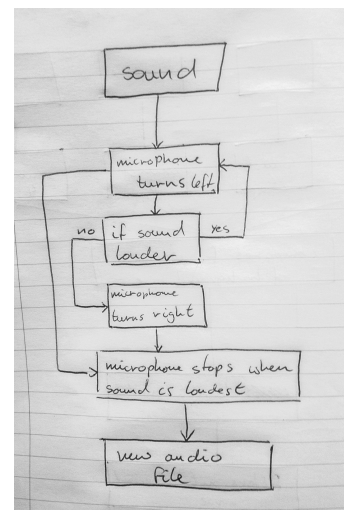 sound
microphone
turns left
no
if sound
yes
louder
microphone
turns right
microphone stops when
sound is loudest
new audio
file